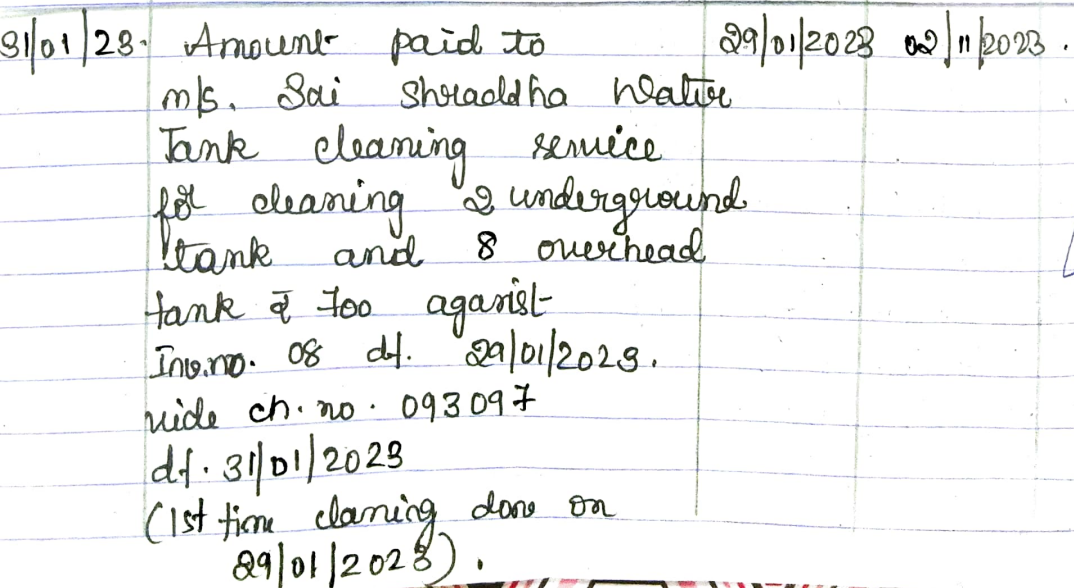 31/01/23. Amount paid to 29/01/2023 02/11/2023.
m/s. Sai Shraddha Water
Tank cleaning service
for cleaning 2 underground
tank and 8 overhead
tank ₹ 700 agarist
Inv.no. 08 dt. 29/01/2023.
vide ch. no. 093097
dt. 31/01/2023
(1st time claning done on
29/01/2023).